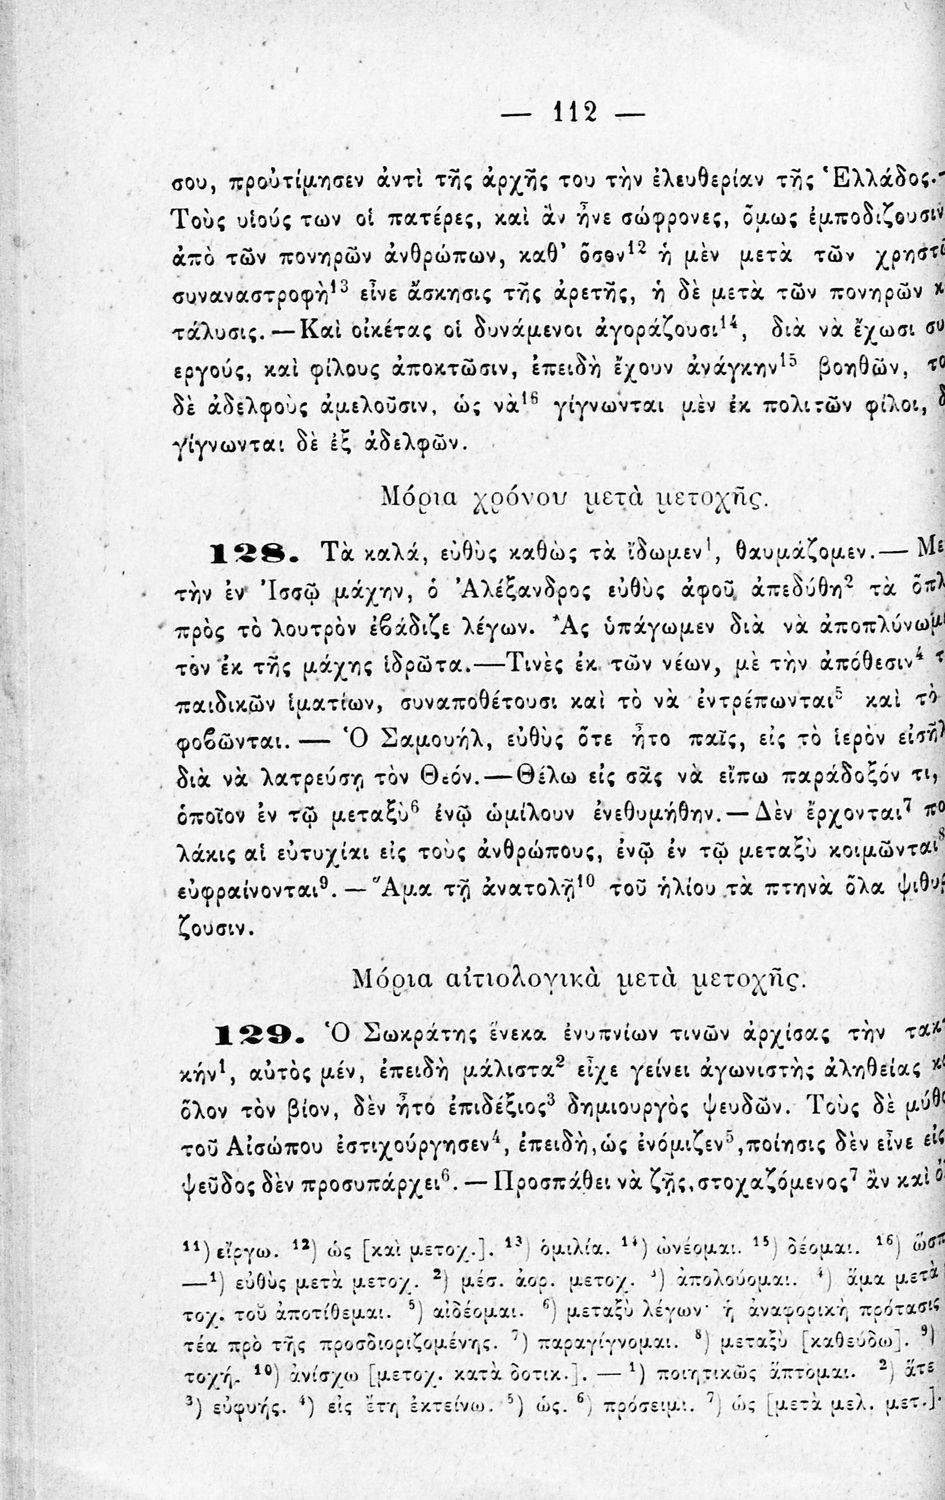 — 112 —
σου, προὐτίμησεν ἀντὶ τῆς ἀρχῆς του τὴν ἐλευθερίαν τῆς Ἑλλάδος.-
Τοὺς υἱούς των οἱ πατέρες, καὶ ἂν ἦνε σώφρονες, ὅμως ἐμποδίζουσιν
ἀπὸ τῶν πονηρῶν ἀνθρώπων, καθ' ὅσον¹² ἡ μὲν μετὰ τῶν χρηστῶ
συναναστροφὴ¹³ εἶνε ἄσκησις τῆς ἀρετῆς, ἡ δὲ μετὰ τῶν πονηρῶν κ
τάλυσις.—Καὶ οἰκέτας οἱ δυνάμενοι ἀγοράζουσι¹⁴, διὰ νὰ ἔχωσι συ
εργούς, καὶ φίλους ἀποκτῶσιν, ἐπειδὴ ἔχουν ἀνάγκην¹⁵ βοηθῶν, το
δὲ ἀδελφοὺς ἀμελοῦσιν, ὡς νὰ¹⁶ γίγνωνται μὲν ἐκ πολιτῶν φίλοι, δ
γίγνωνται δὲ ἐξ ἀδελφῶν.
Μόρια χρόνου μετὰ μετοχῆς.
128. Τὰ καλά, εὐθὺς καθὼς τὰ ἴδωμεν¹, θαυμάζομεν.— Με
τὴν ἐν Ἰσσῷ μάχην, ὁ Ἀλέξανδρος εὐθὺς ἀφοῦ ἀπεδύθη² τὰ ὅπλ
πρὸς τὸ λουτρὸν ἐβάδιζε λέγων. Ἂς ὑπάγωμεν διὰ νὰ ἀποπλύνωμ
τὸν ἐκ τῆς μάχης ἱδρῶτα.—Τινὲς ἐκ τῶν νέων, μὲ τὴν ἀπόθεσιν⁴ τ
παιδικῶν ἱματίων, συναποθέτουσι καὶ τὸ νὰ ἐντρέπωνται⁵ καὶ τὸ
φοβῶνται. — Ὁ Σαμουήλ, εὐθὺς ὅτε ἦτο παῖς, εἰς τὸ ἱερὸν εἰσῆλ
διὰ νὰ λατρεύσῃ τὸν Θεόν.—Θέλω εἰς σᾶς νὰ εἴπω παράδοξόν τι,
ὁποῖον ἐν τῷ μεταξὺ⁶ ἐνῷ ὡμίλουν ἐνεθυμήθην.—Δὲν ἔρχονται⁷ πο
λάκις αἱ εὐτυχίαι εἰς τοὺς ἀνθρώπους, ἐνῷ ἐν τῷ μεταξὺ κοιμῶνται⁸
εὐφραίνονται⁹. —Ἅμα τῇ ἀνατολῇ¹⁰ τοῦ ἡλίου τὰ πτηνὰ ὅλα ψιθυρ
ζουσιν.
Μόρια αἰτιολογικὰ μετὰ μετοχῆς.
129. Ὁ Σωκράτης ἕνεκα ἐνυπνίων τινῶν ἀρχίσας τὴν τακ
κήν¹, αὐτὸς μέν, ἐπειδὴ μάλιστα² εἶχε γείνει ἀγωνιστὴς ἀληθείας κ
ὅλον τὸν βίον, δὲν ἦτο ἐπιδέξιος³ δημιουργὸς ψευδῶν. Τοὺς δὲ μύθο
τοῦ Αἰσώπου ἐστιχούργησεν⁴, ἐπειδὴ, ὡς ἐνόμιζεν⁵, ποίησις δὲν εἶνε εἰς
ψεῦδος δὲν προσυπάρχει⁶. —Προσπάθει νὰ ζῇς, στοχαζόμενος⁷ ἂν καὶ ὀ
¹¹) εἴργω. ¹²) ὡς [καὶ μετοχ.]. ¹³) ὁμιλία. ¹⁴) ὠνέομαι. ¹⁵) δέομαι. ¹⁶) ὥσπ
—¹) εὐθὺς μετὰ μετοχ. ²) μέσ. ἀορ. μετοχ. ³) ἀπολούομαι. ⁴) ἅμα μετὰ
τοχ. τοῦ ἀποτίθεμαι. ⁵) αἰδέομαι. ⁶) μεταξὺ λέγων· ἡ ἀναφορικὴ πρότασις
τέα πρὸ τῆς προσδιοριζομένης. ⁷) παραγίγνομαι. ⁸) μεταξὺ [καθεύδω]. ⁹)
τοχή. ¹⁰) ἀνίσχω [μετοχ. κατὰ δοτικ.]. —¹) ποιητικῶς ἅπτομαι. ²) ἅτε
³) εὐφυής. ⁴) εἰς ἔτη ἐκτείνω. ⁵) ὡς. ⁶) πρόσειμι. ⁷) ὡς [μετὰ μελ. μετ.].